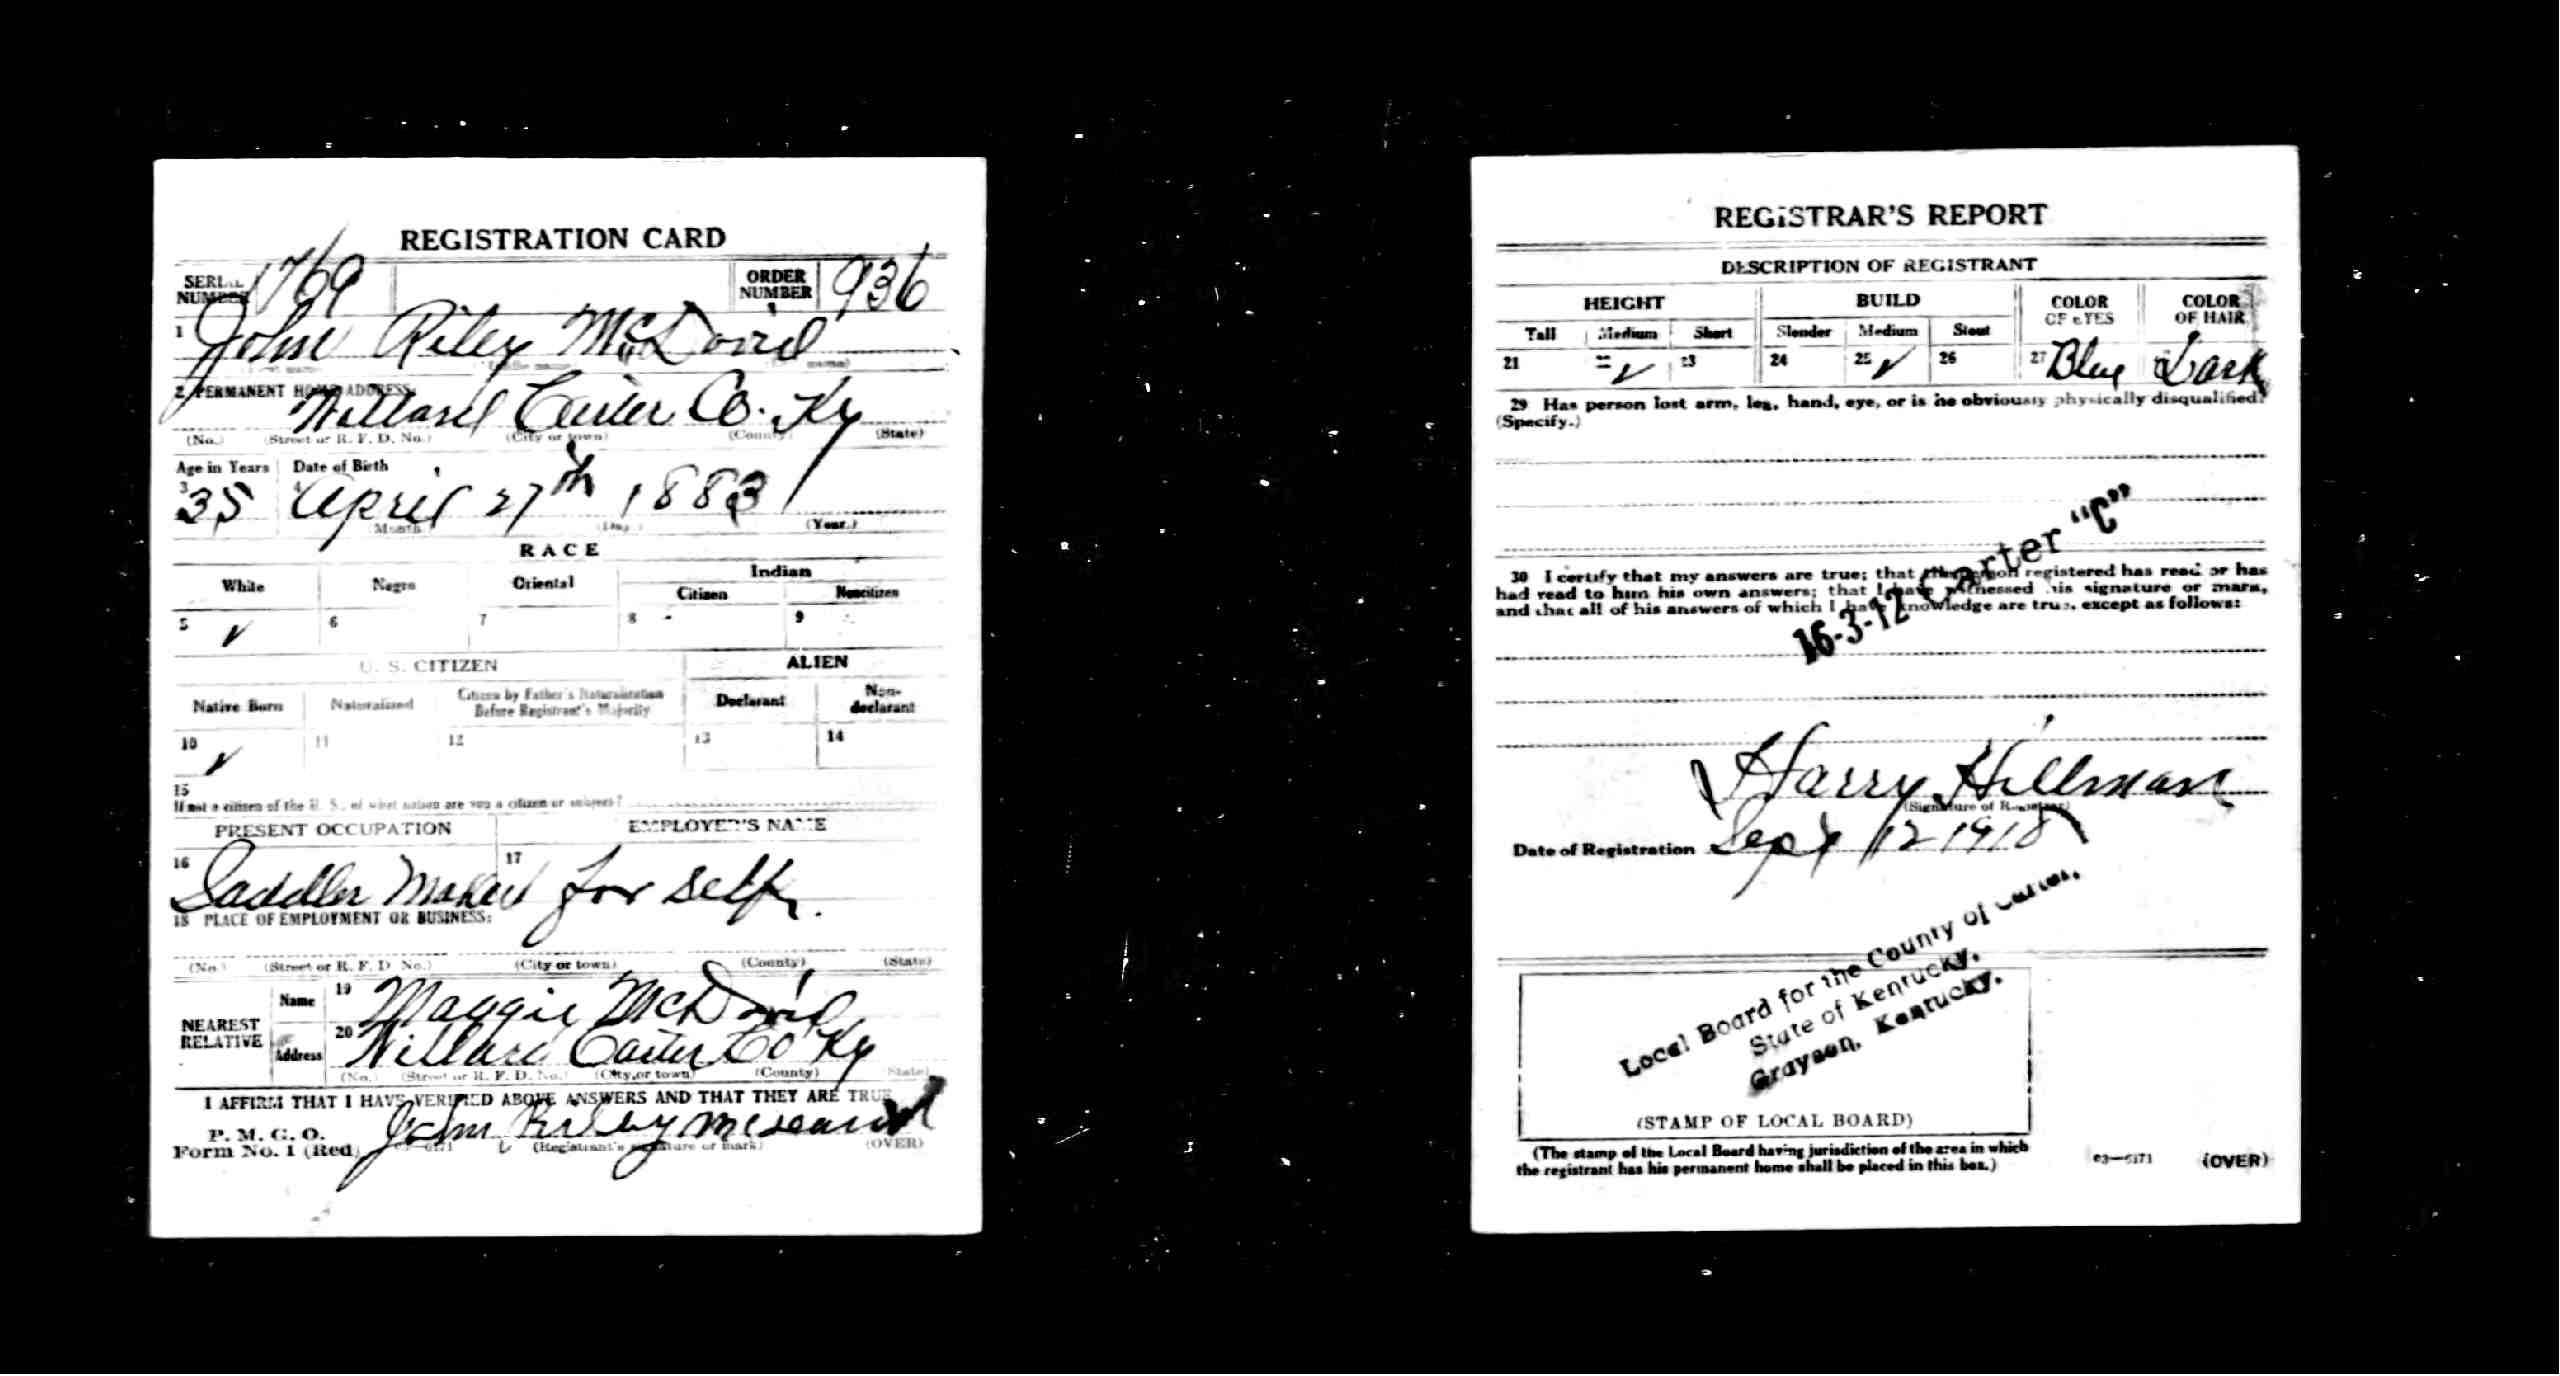 REGISTRATION CARD
SERIAL NUMBER 1769 ORDER NUMBER 936
1 John Riley McDavid
2 PERMANENT HOME ADDRESS:
Willard Carter Co. Ky
(No.) (Street or R. F. D. No.) (City or town) (County) (State)
Age in Years Date of Birth
3 35 4 April 27th 1883
(Month) (Day.) (Year.)
RACE
White Negro Oriental Indian
Citizen Noncitizen
5 ✓ 6 7 8 9
U. S. CITIZEN ALIEN
Native Born Naturalized Citizen by Father's Naturalization Before Registrant's Majority Declarant Non-declarant
10 ✓ 11 12 13 14
15
If not a citizen of the U. S., of what nation are you a citizen or subject?
PRESENT OCCUPATION EMPLOYER'S NAME
16 Saddler Maker 17 for self.
18 PLACE OF EMPLOYMENT OR BUSINESS:
(No.) (Street or R. F. D. No.) (City or town) (County) (State)
NEAREST RELATIVE Name 19 Maggie McDavid
Address 20 Willard Carter Co Ky
(No.) (Street or R. F. D. No.) (City or town) (County) (State)
I AFFIRM THAT I HAVE VERIFIED ABOVE ANSWERS AND THAT THEY ARE TRUE
P. M. G. O.
Form No. 1 (Red) John Riley McDavid
03—6171 (Registrant's signature or mark) (OVER)
REGISTRAR'S REPORT
DESCRIPTION OF REGISTRANT
HEIGHT BUILD COLOR OF EYES COLOR OF HAIR
Tall Medium Short Slender Medium Stout
21 22 ✓ 23 24 25 ✓ 26 27 Blue Dark
29 Has person lost arm, leg, hand, eye, or is he obviously physically disqualified?
(Specify.)
16-3-12 Carter "C"
30 I certify that my answers are true; that the person registered has read or has
had read to him his own answers; that I have witnessed his signature or mark,
and that all of his answers of which I have knowledge are true, except as follows:
Harry Hillman
(Signature of Registrar)
Date of Registration Sept 12 1918
Local Board for the County of Carter,
State of Kentucky,
Grayson, Kentucky.
(STAMP OF LOCAL BOARD)
(The stamp of the Local Board having jurisdiction of the area in which
the registrant has his permanent home shall be placed in this box.)
03—6171 (OVER)